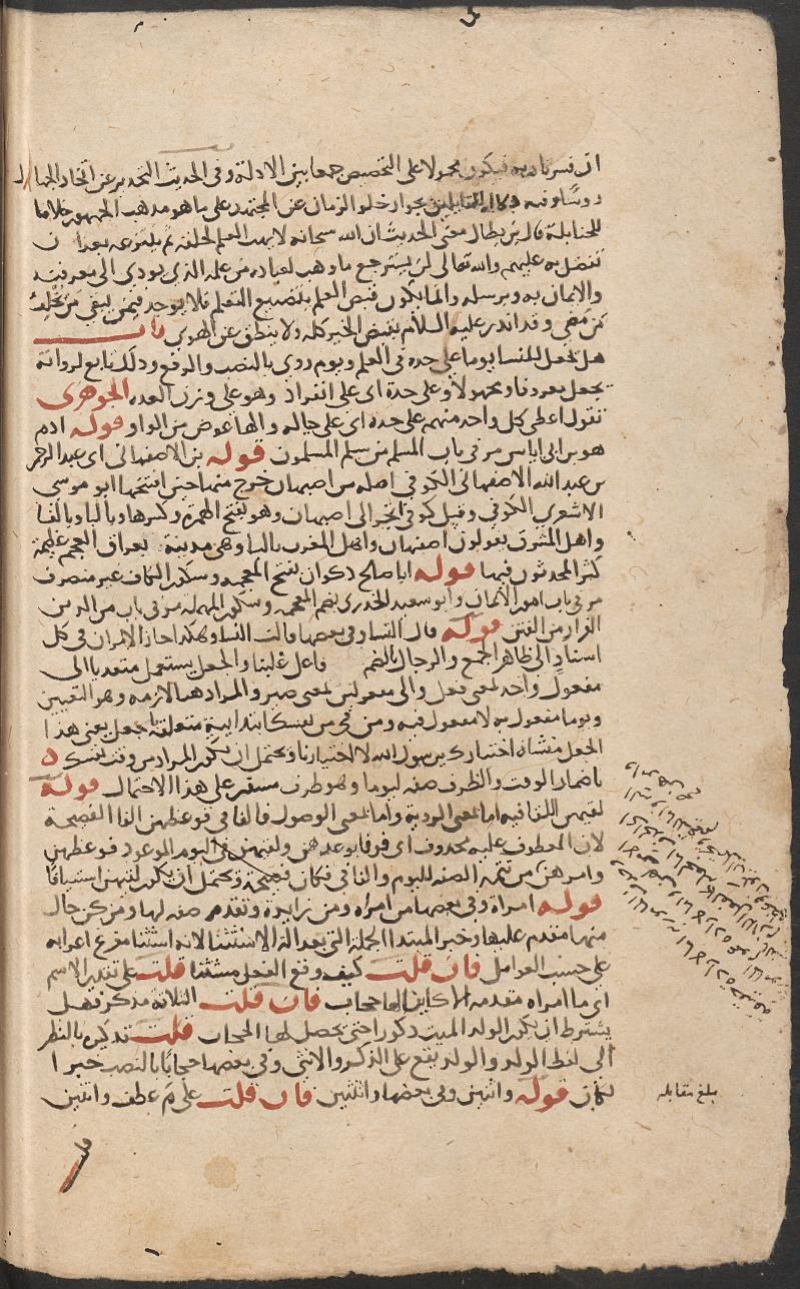 ان فسرناه به فيكون محمولا على التخصيص جمعا بين الادلة وفى الحديث التحذير عن اتخاذ الجهال
روسا وفيه للقايلين بجواز خلو الزمان عن المجتهد على ما هو مذهب الجمهور خلافا
للحنابلة قال بن بطال معنى الحديث ان الله سبحانه لا يهب العلم لخلقه ثم ينتزعه بعد ان
تفضل به عليهم والله تعالى ان يسترجع ما وهب لعباده من علمه الذي يودي الى معرفته
والايمان به وبرسله وانما يكون قبض العلم بتضييع التعلم فلا يوجد فيمن يبقى من يخلف
من مضى وقد انذر عليه السلام بقبض الخير كله ولا ينطق عن الهوي باب
هل يجعل للنسا يوما على حدة فى العلم ويوم روي بالنصب والرفع وذلك تابع لرواية
يجعل معروفا ومجهولا وعلى حدة اى على انفراد وهو على وزن العده الجوهرى
تقول اعطى كل واحد منهم على حدة اى على حياله والها عوض من الواو قوله ادم
هو بن ابى اياس مر فى باب المسلم من سلم المسلمون قوله بن الاصفهانى اى عبد الرحمن
بن عبد الله الاصفهانى الكوفى اصله من اصبهان خرج منها حين افتتحها ابو موسى
الاشعري الكوفى وقيل كوفى اتجر الى اصبهان وهو بفتح الهمزة وكسرها وبالبا وبالفا
واهل المشرق يقولون اصفهان واهل المغرب بالبا وهى مدينة بعراق العجم عظيمة
كثر المحدثون فيها قوله ابا صالح ذكوان بفتح المعجمه وسكون الكاف غير منصرف
مر فى باب امور الايمان وابو سعيد الخدرى بضم المعجمه وسكون المهمله مر فى باب من الدين
الفرار من الفتن قوله قال النسا وفى بعضها قالت النسا وهكذا جاز الامران فى كل
اسناد الى ظاهر الجمع والرجال بالضم فاعل غلبنا والجعل يستعمل متعديا الى
مفعول واحد بمعنى فعل والى مفعولين بمعنى صير والمراد هنا لازمه وهو التعيين
ويوما مفعول به لا مفعول فيه ومن فى من نفسك ابتدايية متعلقة باجعل يعنى هذا
الجعل منشاه اختيارك يرسول الله لا اختيارنا ويحتمل ان يكون المراد من وقت نفسك
باضمار الوقت والظرف صفه ليوما وهو ظرف مستقر على هذا الاحتمال قوله
لقيهن اللقا فيه اما بمعنى الروية واما بمعنى الوصول فالفا فى فوعظهن الفا الفصيحة
لان المعطوف عليه محذوف اى فوفا بوعدهن ولقيهن فى اليوم الموعود فوعظهن
وامرهن من تتمة الصفه لليوم والفا فى فكان فصيحة ويحتمل ان يكون لقيهن استينافا
قوله امراة وفى بعضها من امراه ومن زايدة وتقدم صفه لها ومنكن حال
منها مقدم عليها وخبر المبتدا الجملة التى بعد الة الاستثنا لانه استثنا مفرغ اعرابه
على حسب العوامل فان قلت كيف وقع الفعل مستثنا قلت على تقدير الاسم
اى ما امراه مقدمه الا كاين لها حجاب فان قلت الثلاثة مذكر فهل
يشترط ان يكون الولد الميت ذكورا حتى يحصل لها الحجاب قلت تذكيره بالنظر
الى لفظ الولد والولد يقع على الذكر والانثى وفى بعضها حجابا بالنصب خبرا
لكان قوله واثنين وفى بعضها واثنتين فان قلت على م عطف واثنين
بلغ مقابله
قلت